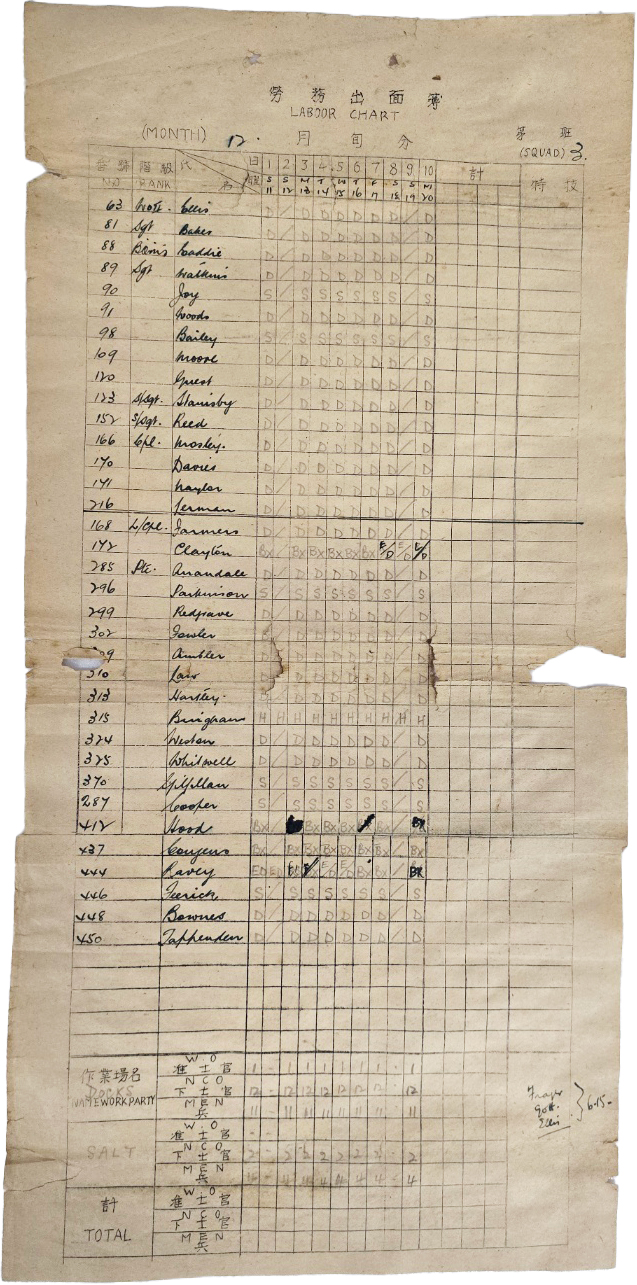 勞務出面簿
LABOOR CHART
(MONTH) 12. 月 旬 分 第 班
(SQUAD) 3.
番號 階級 氏 名 日 1 2 3 4 5 6 7 8 9 10 計 特技
NO RANK S S M T W T F S S M
11 12 13 14 15 16 17 18 19 20
63 Ellis D / D D D D D D / D
81 Sgt Baker D / D D D D D D / D
88 Caddie D / D D D D D D / D
89 Sgt Watkins D / D D D D D D / D
90 Joy S / S S S S S S / S
91 Woods D / D D D D D D / D
98 Bailey S / S S S S S S / S
109 Moore D / D D D D D D / D
120 Guest D / D D D D D D / D
123 S/Sgt. Stanisby D / D D D D D D / D
152 S/Sgt. Reed D / D D D D D D / D
166 Cpl. Mosley. D / D D D D D D / D
170 Davies D / D D D D D D / D
171 Naylor D / D D D D D D / D
216 Jerman D / D D D D D D / D
168 L/Cpl. Farmers D / D D D D D D / D
172 Clayton Bx / Bx Bx Bx Bx Bx E/D E/D E/D
285 Pte. Anandale D / D D D D D D / D
296 Parkinson S / S S S S S S / S
299 Redgrave D / D D D D D D / D
302 Fowler D D D D D D / D
Ambler D D D D D D D / D
310 Law D D D D D D D / D
313 Hartley. D / D D D D D D / D
315 Bingham H H H H H H H H H H
324 Weston D / D D D D D D / D
325 Whitwell D / D D D D D D / D
370 Gilfillan S / S S S S S S / S
287 Cooper S / S S S S S S / S
412 Hood Bx / Bx Bx Bx Bx / Bx
437 Couzens Bx / Bx Bx Bx Bx Bx Bx / Bx
444 Ravey ED ED Bx Bx / Bx
446 Feerick S / S S S S S S / S
448 Bownes D / D D D D D D / D
450 Tappenden D / D D D D D D / D
作業場名 W.O 准士官 1 - 1 1 1 1 1 1 - 1
DOCKS NCO 下士官 12 - 12 12 12 12 12 12 - 12
NAMEWORKPARTY MEN 兵 11 - 11 11 11 11 11 11 - 11
Ellis } 6.15-
W.O 准士官 - -
SALT NCO 下士官 2 - 2 2 2 2 2 2 - 2
MEN 兵 4 - 4 4 4 4 4 4 - 4
計 W.O 准士官
TOTAL NCO 下士官
MEN 兵